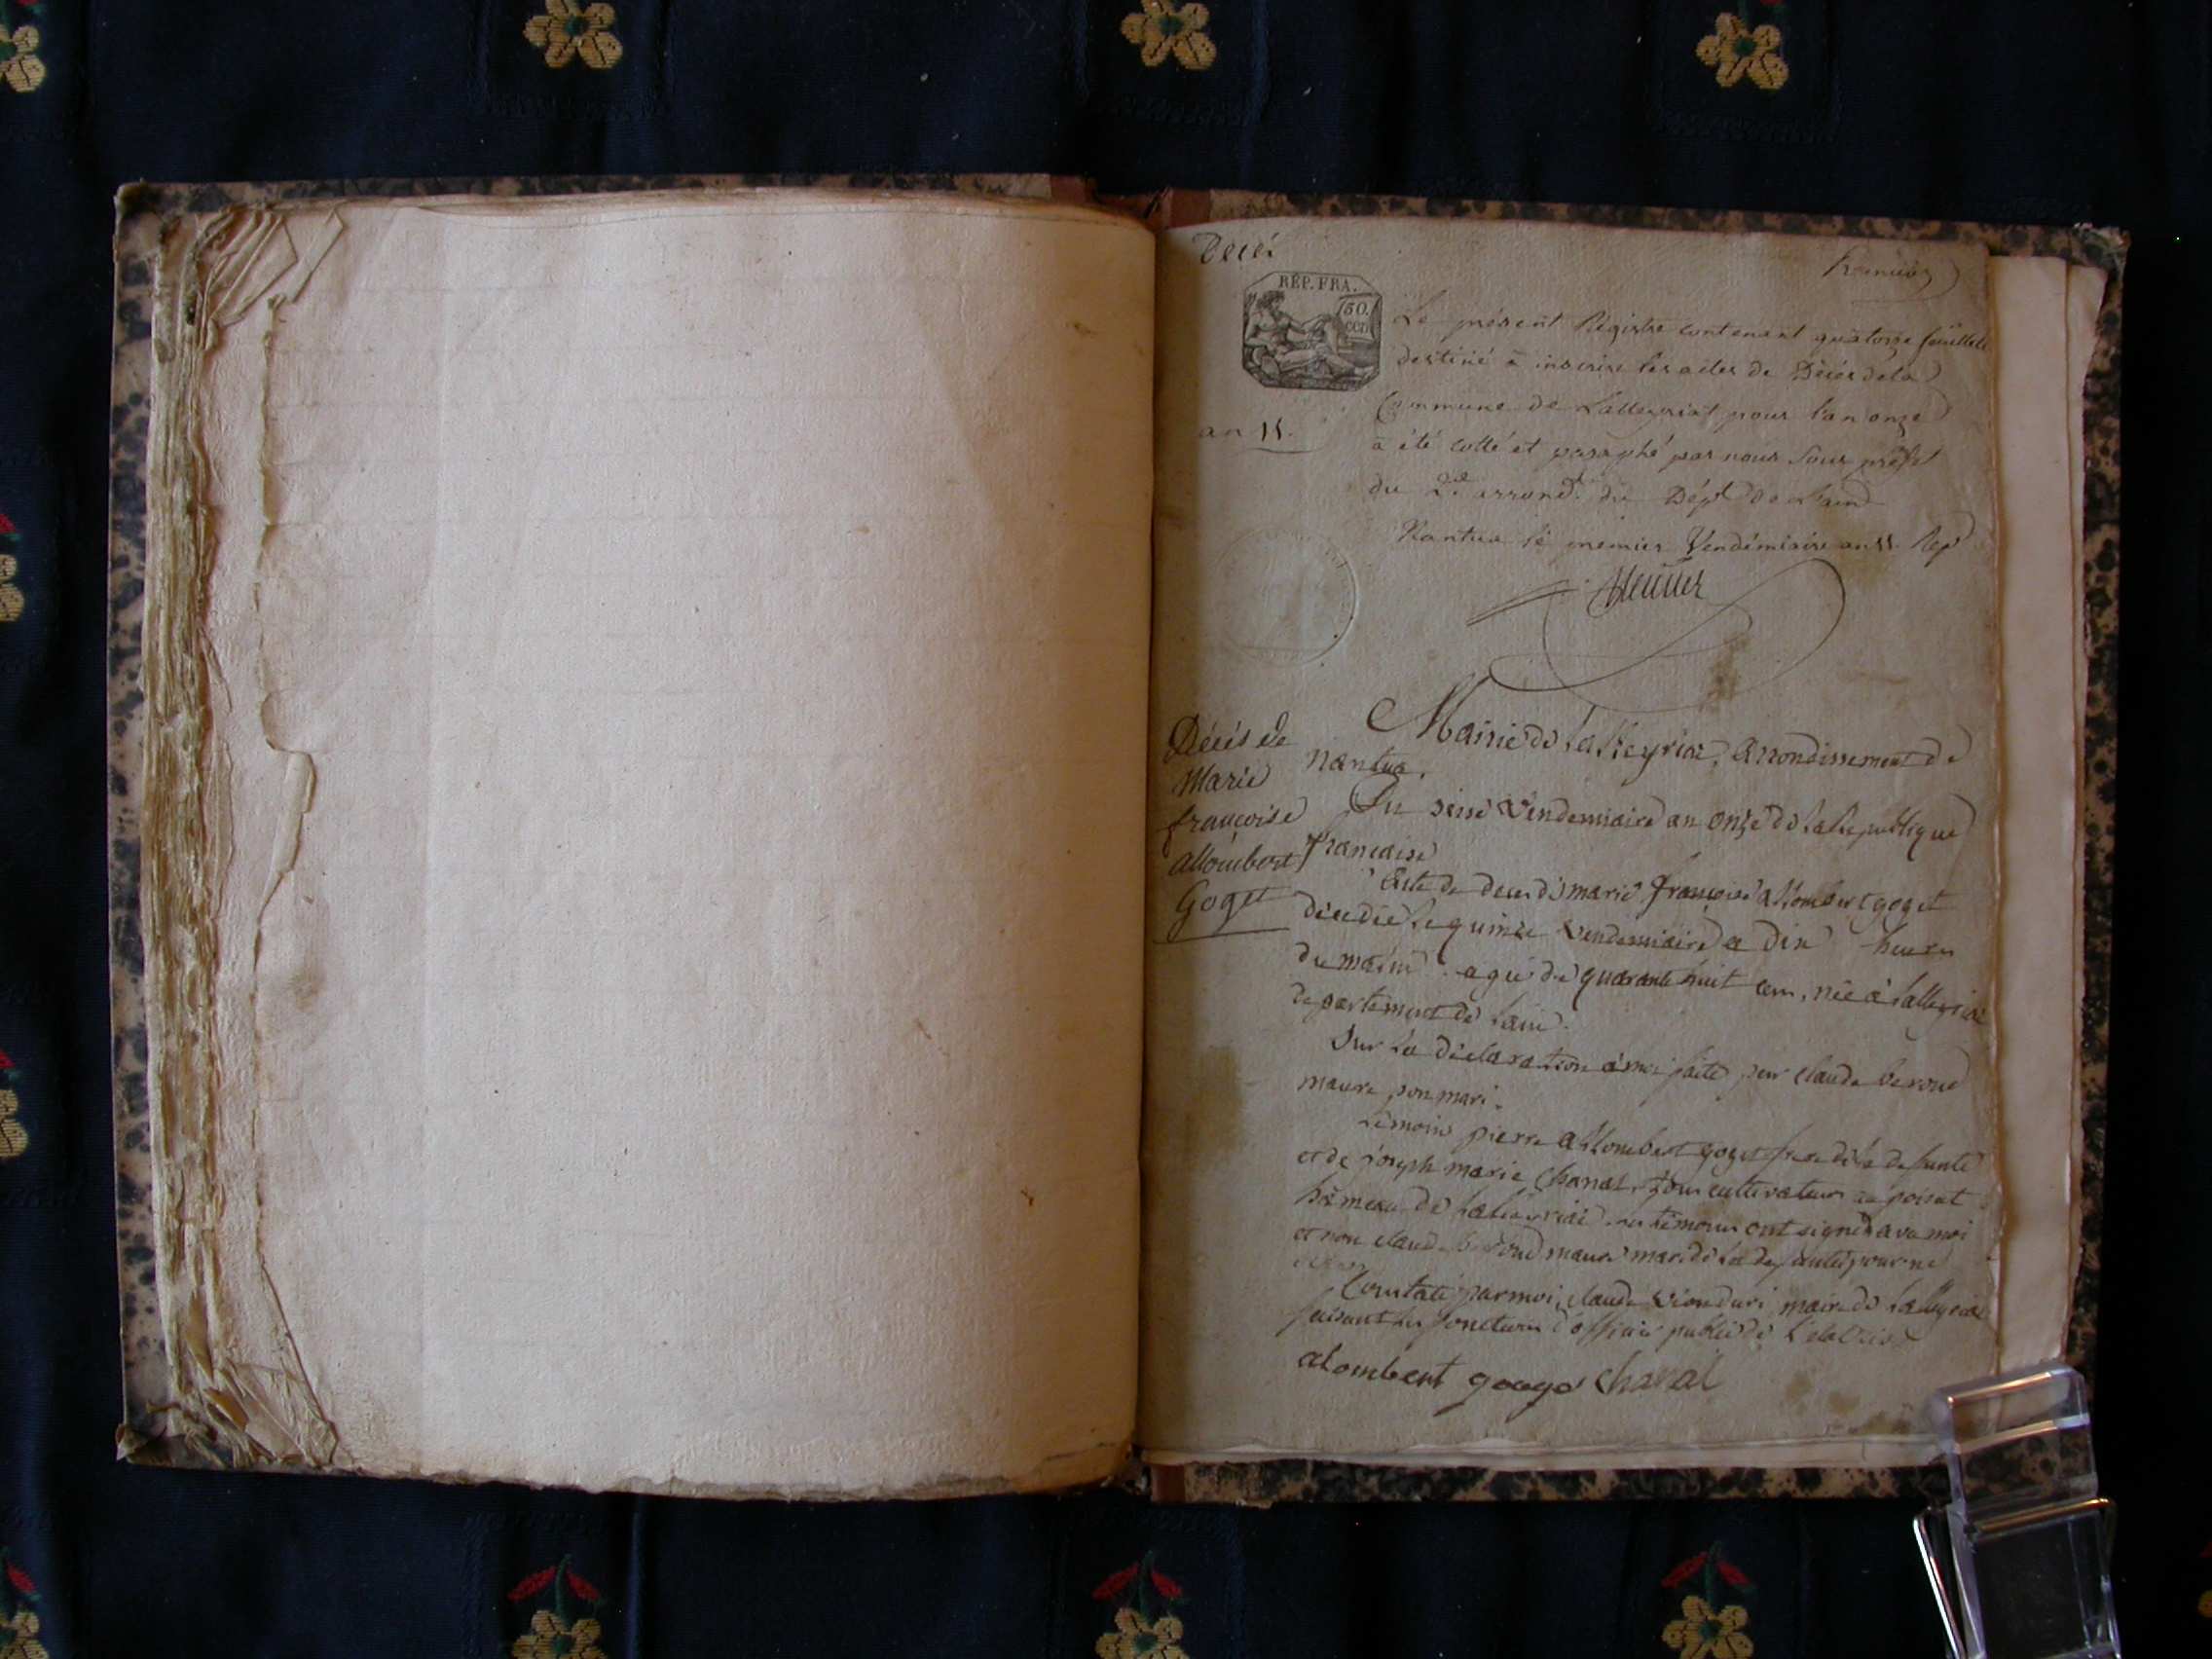 Décès
Premier
RÉP. FRA.
50.
cen
Le présent Régistre contenant quatorze feuillets
destiné à inscrire les actes de Décès de la
Commune de Lalleyriat pour l'an onze
a été cotté et paraphé par nous Sous préfet
du 2.e arrond.t du Dépt de L'ain
an 11.
Nantua le premier Vendémiaire an 11. Rep
Décès de
Marie
françoise
allombert
Goget
Mairie de Lalleyriat, Arrondissement de
nantua.
Du seize vendemiaire an onze de la Republique
française
Acte de deces de marie françoise allombert goget
décédée le quinze vendemiaire a dix heures
du matin agée de quarante huit ans, née à lalleyriat
departement de lain.
Sur la déclaration à moi faite par claude beroud
maure son mari.
Témoins pierre allombert goget frere de la defunte
et de joseph marie Chanal, tous cultivateurs au poisat
hameau de Lalleyriat les témoins ont signés avec moi
et non claude beroud maure mari de la defunte pour ne
Constaté par moi claude maire de Lalleyriat
faisant les fonctions d'officier public de l'etat civil
alombert gougé chanal